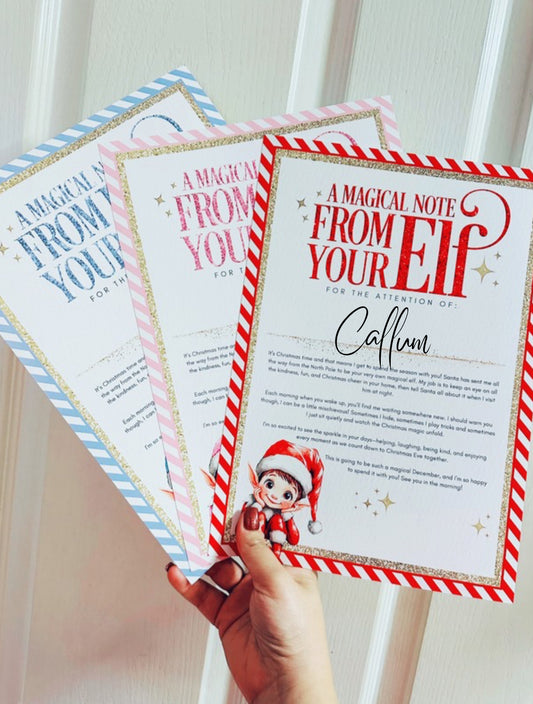 A MAGICAL NOTE
FROM
YOUR Elf
FOR THE ATTENTION OF:
Callum
It's Christmas time and that means I get to spend the season with you! Santa has sent me all
the way from the North Pole to be your very own magical elf. My job is to keep an eye on all
the kindness, fun, and Christmas cheer in your home, then tell Santa all about it when I visit
him at night.
Each morning when you wake up, you'll find me waiting somewhere new. I should warn you
though, I can be a little mischievous! Sometimes I hide, sometimes I play tricks and sometimes
I just sit quietly and watch the Christmas magic unfold.
I'm so excited to see the sparkle in your days-helping, laughing, being kind, and enjoying
every moment as we count down to Christmas Eve together.
This is going to be such a magical December, and I'm so happy
to spend it with you! See you in the morning!
A MAGICAL
FROM
YOUR
FOR THE
It's Christmas time and
the way from the North
the kindness, fun,
Each morning
though, I can be
I'm so
A MAGICAL
FROM
YOUR
FOR TH
It's Christmas time and
the way from the North
the kindness, fun,
Each morning
though, I can
I'm so